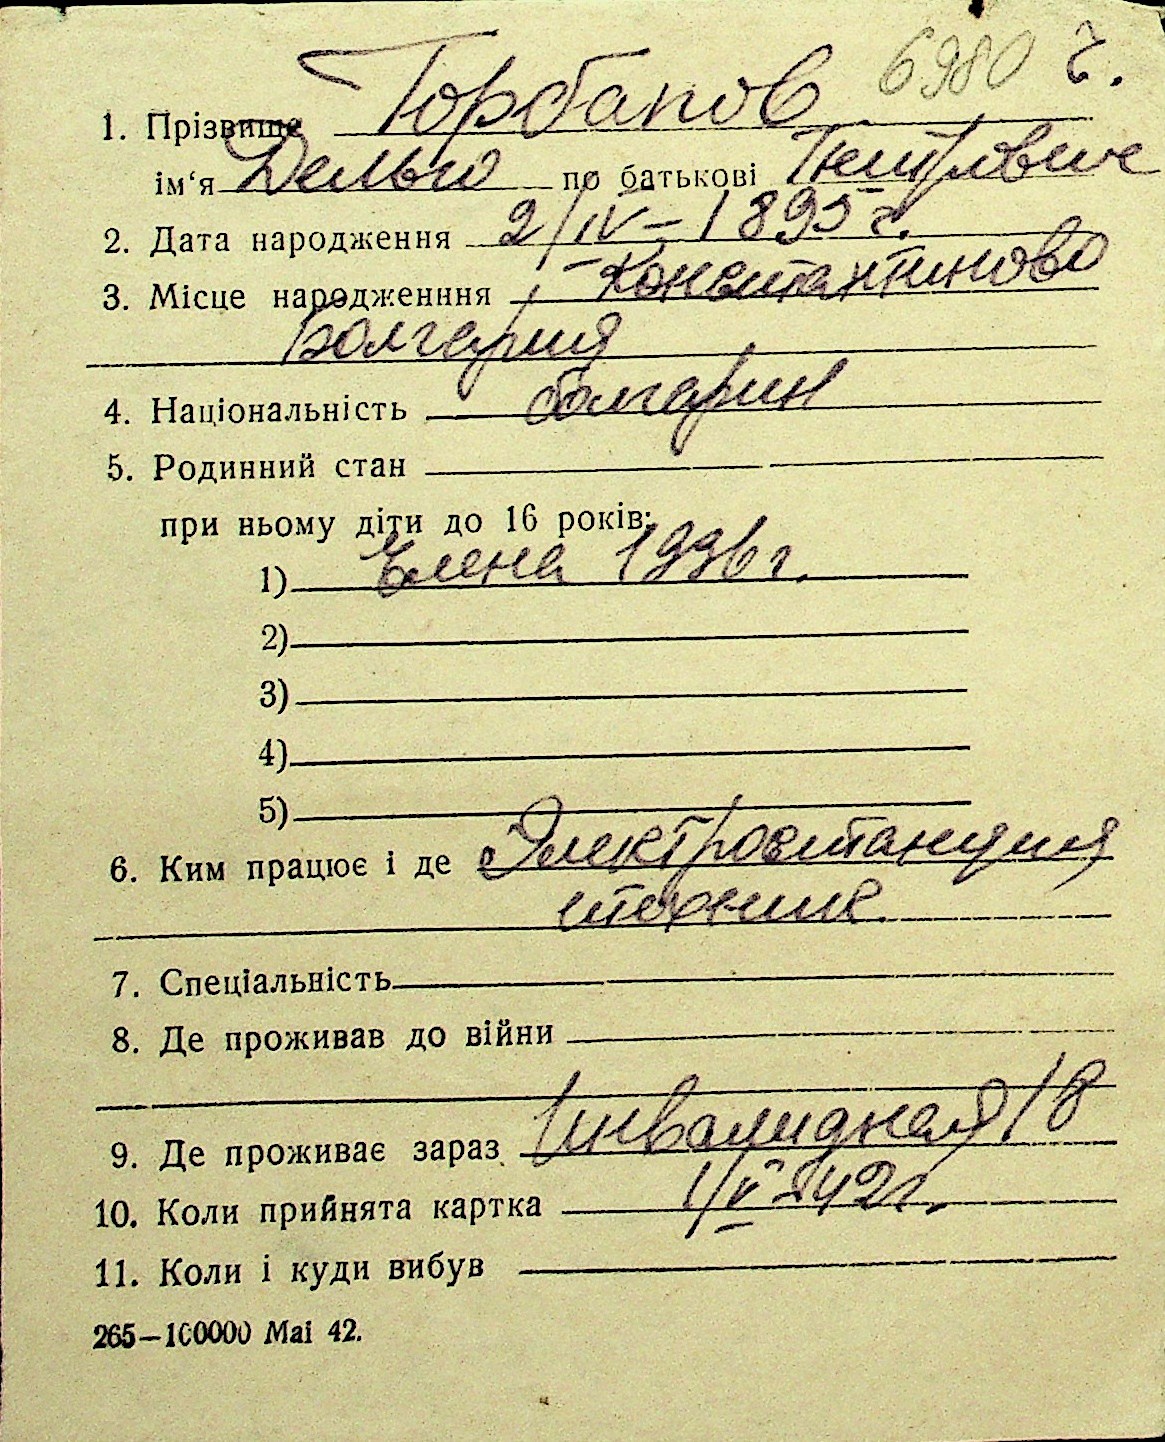 6980 г.
1. Прізвище Горбанов
ім'я Дельго по батькові
2. Дата народження 2/IV-1895 г.
3. Місце народженння Константиново
Болгария
4. Національність болгарин
5. Родинний стан
при ньому діти до 16 років:
1) Елена 1936 г.
2)
3)
4)
5)
6. Ким працює і де Электростанция
сторож
7. Спеціальність
8. Де проживав до війни
9. Де проживає зараз Инвалидная 18
10. Коли прийнята картка 1/V-42 г.
11. Коли і куди вибув
265—100000 Mai 42.